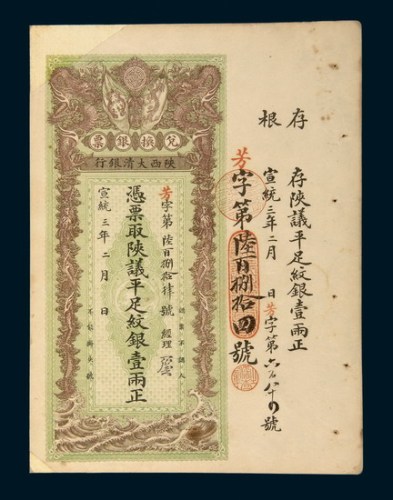 存根
存陝議平足紋銀壹兩正
宣統三年二月 日芳字第六百八十四號
芳字第陸百捌拾四號
兌換銀票
陝西大清銀行
認票不認人
芳字第陸百捌拾肆號 經理
憑票取陝議平足紋銀壹兩正
宣統三年二月 日